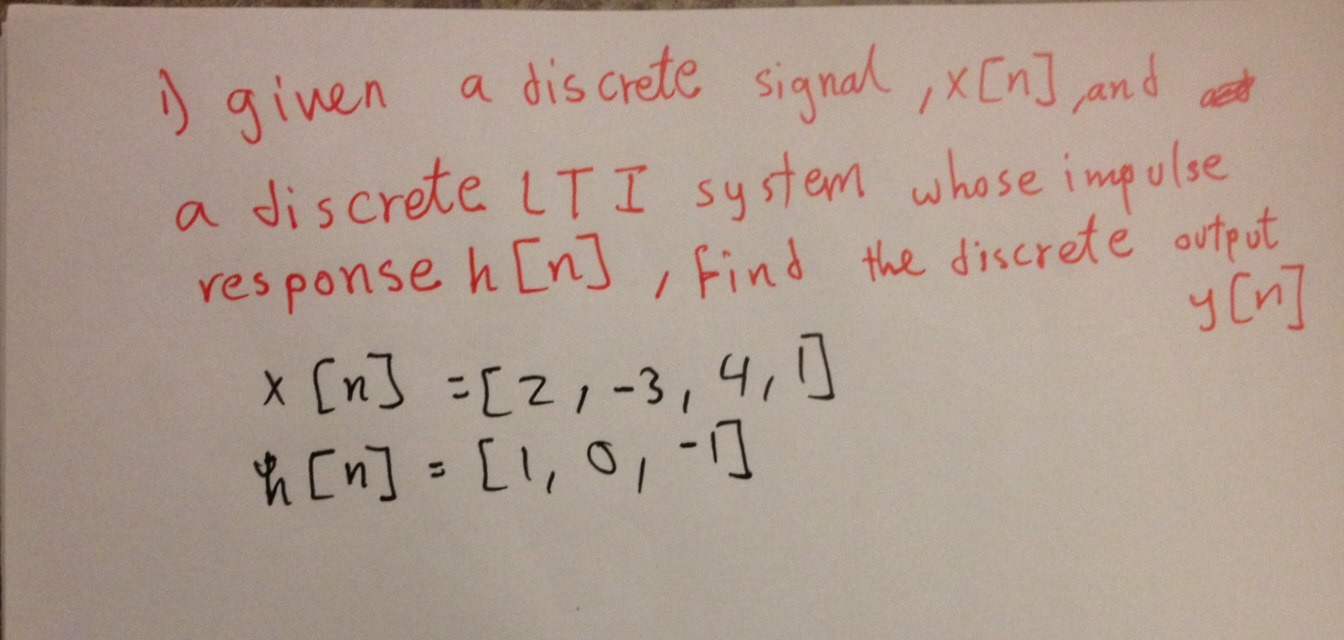 1) given a discrete signal, x[n], and
a discrete LTI system whose impulse
response h[n], find the discrete output
y[n]
x[n] = [2, -3, 4, 1]
h[n] = [1, 0, -1]